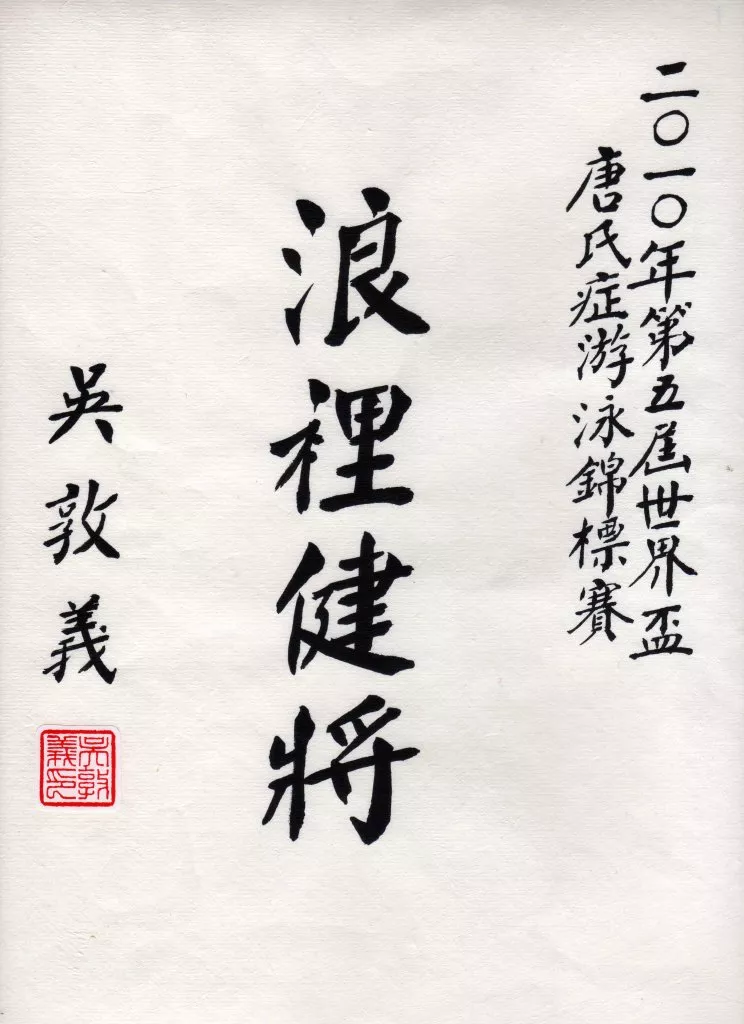 二〇一〇年第五屆世界盃
唐氏症游泳錦標賽
浪裡健將
吳敦義
吳敦
義印